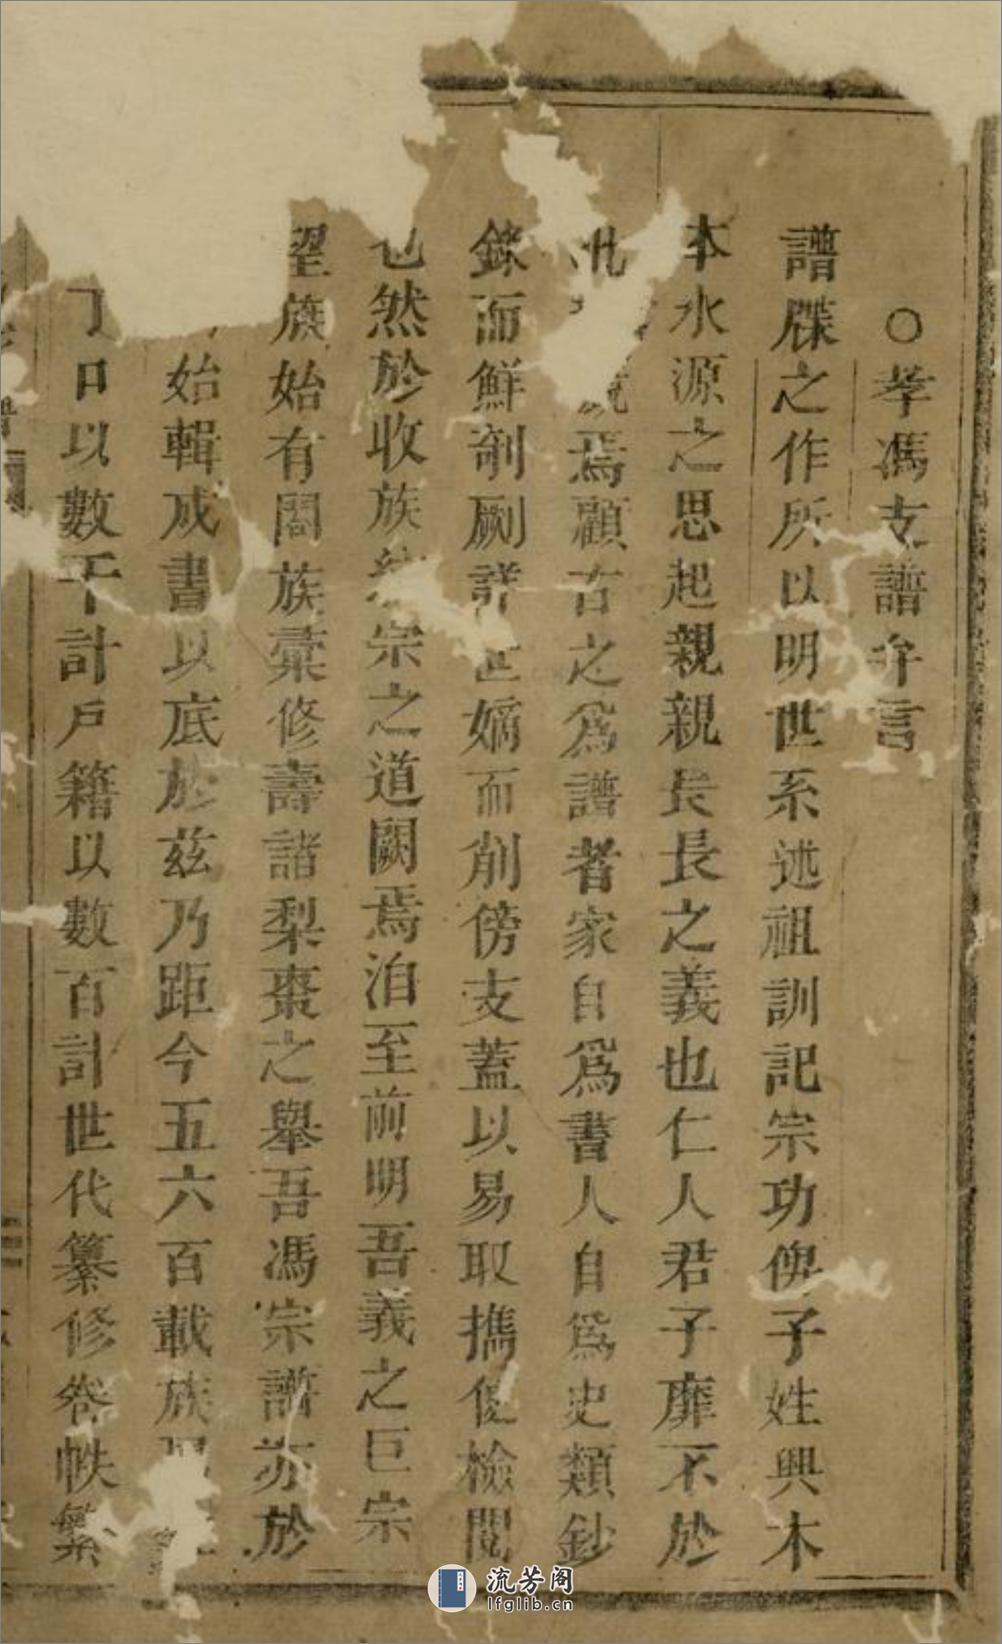 ○孝馮支譜弁言
譜牒之作所以明世系述祖訓記宗功俾子姓興木
本水源之思起親親長長之義也仁人君子靡不於
焉顧古之為譜者家自為書人自為史類鈔
錄而鮮剞劂詳世嫡而削傍支蓋以易取擕便檢閱
也然於收族宗之道闕焉洎至前明吾義之巨宗
望族始有閤族彙修壽諸梨棗之舉吾馮宗譜亦於
始輯成書以底於茲乃距今五六百載族
丁口以數千計戶籍以數百計世代纂修卷帙繁
流芳阁
lfglib.cn